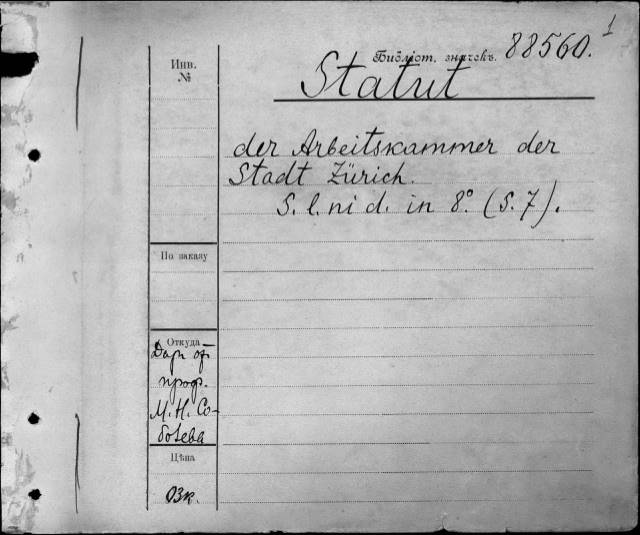 Библіот. значекъ. 88560. 1
Statut
der Arbeitskammer der
Stadt Zürich.
S. l. ni d. in 8° (S. 7).
Инв.
№
По заказу
Откуда
Даръ от
проф.
М. Н. Со-
болева
Цѣна
03к.